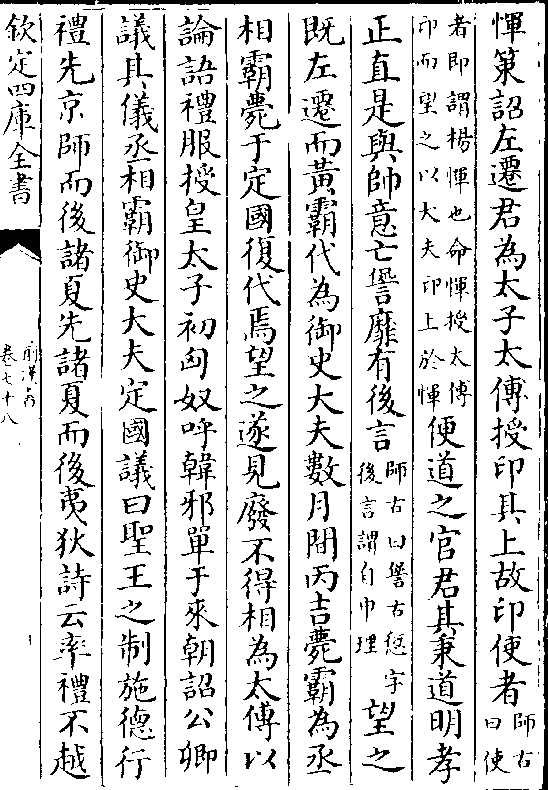 惲策詔左遷君為太子太傅授印其上故印使者師古曰使
者即謂楊惲也命惲授太傅印而望之以大夫印上於惲便道之官君其秉道明孝
正直是與帥意亡諐靡有後言師古曰諐古愆字後言謂自申理望之
既左遷而黃霸代為御史大夫數月間丙吉薨霸為丞
相霸薨于定國復代焉望之遂見廢不得相為太傅以
論語禮服授皇太子初匈奴呼韓邪單于來朝詔公卿
議其儀丞相霸御史大夫定國議曰聖王之制施德行
禮先京師而後諸夏先諸夏而後夷狄詩云率禮不越
欽定四庫全書
前漢書
卷七十八